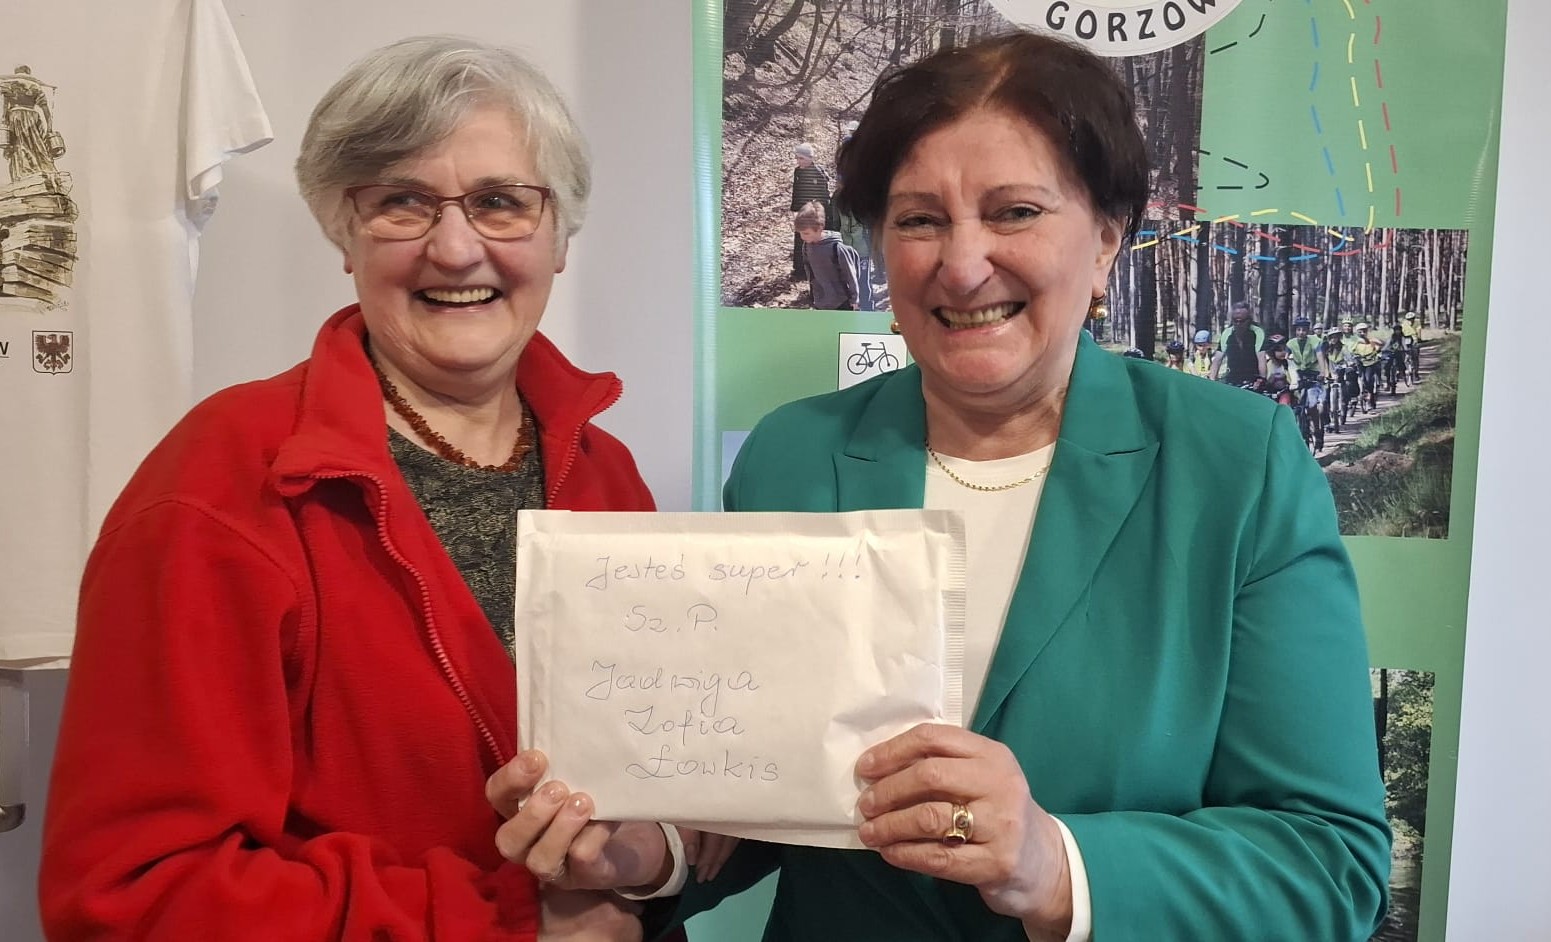 GORZOW
W
Jesteś super!!!
Sz. P.
Jadwiga
Zofia
Łowkis